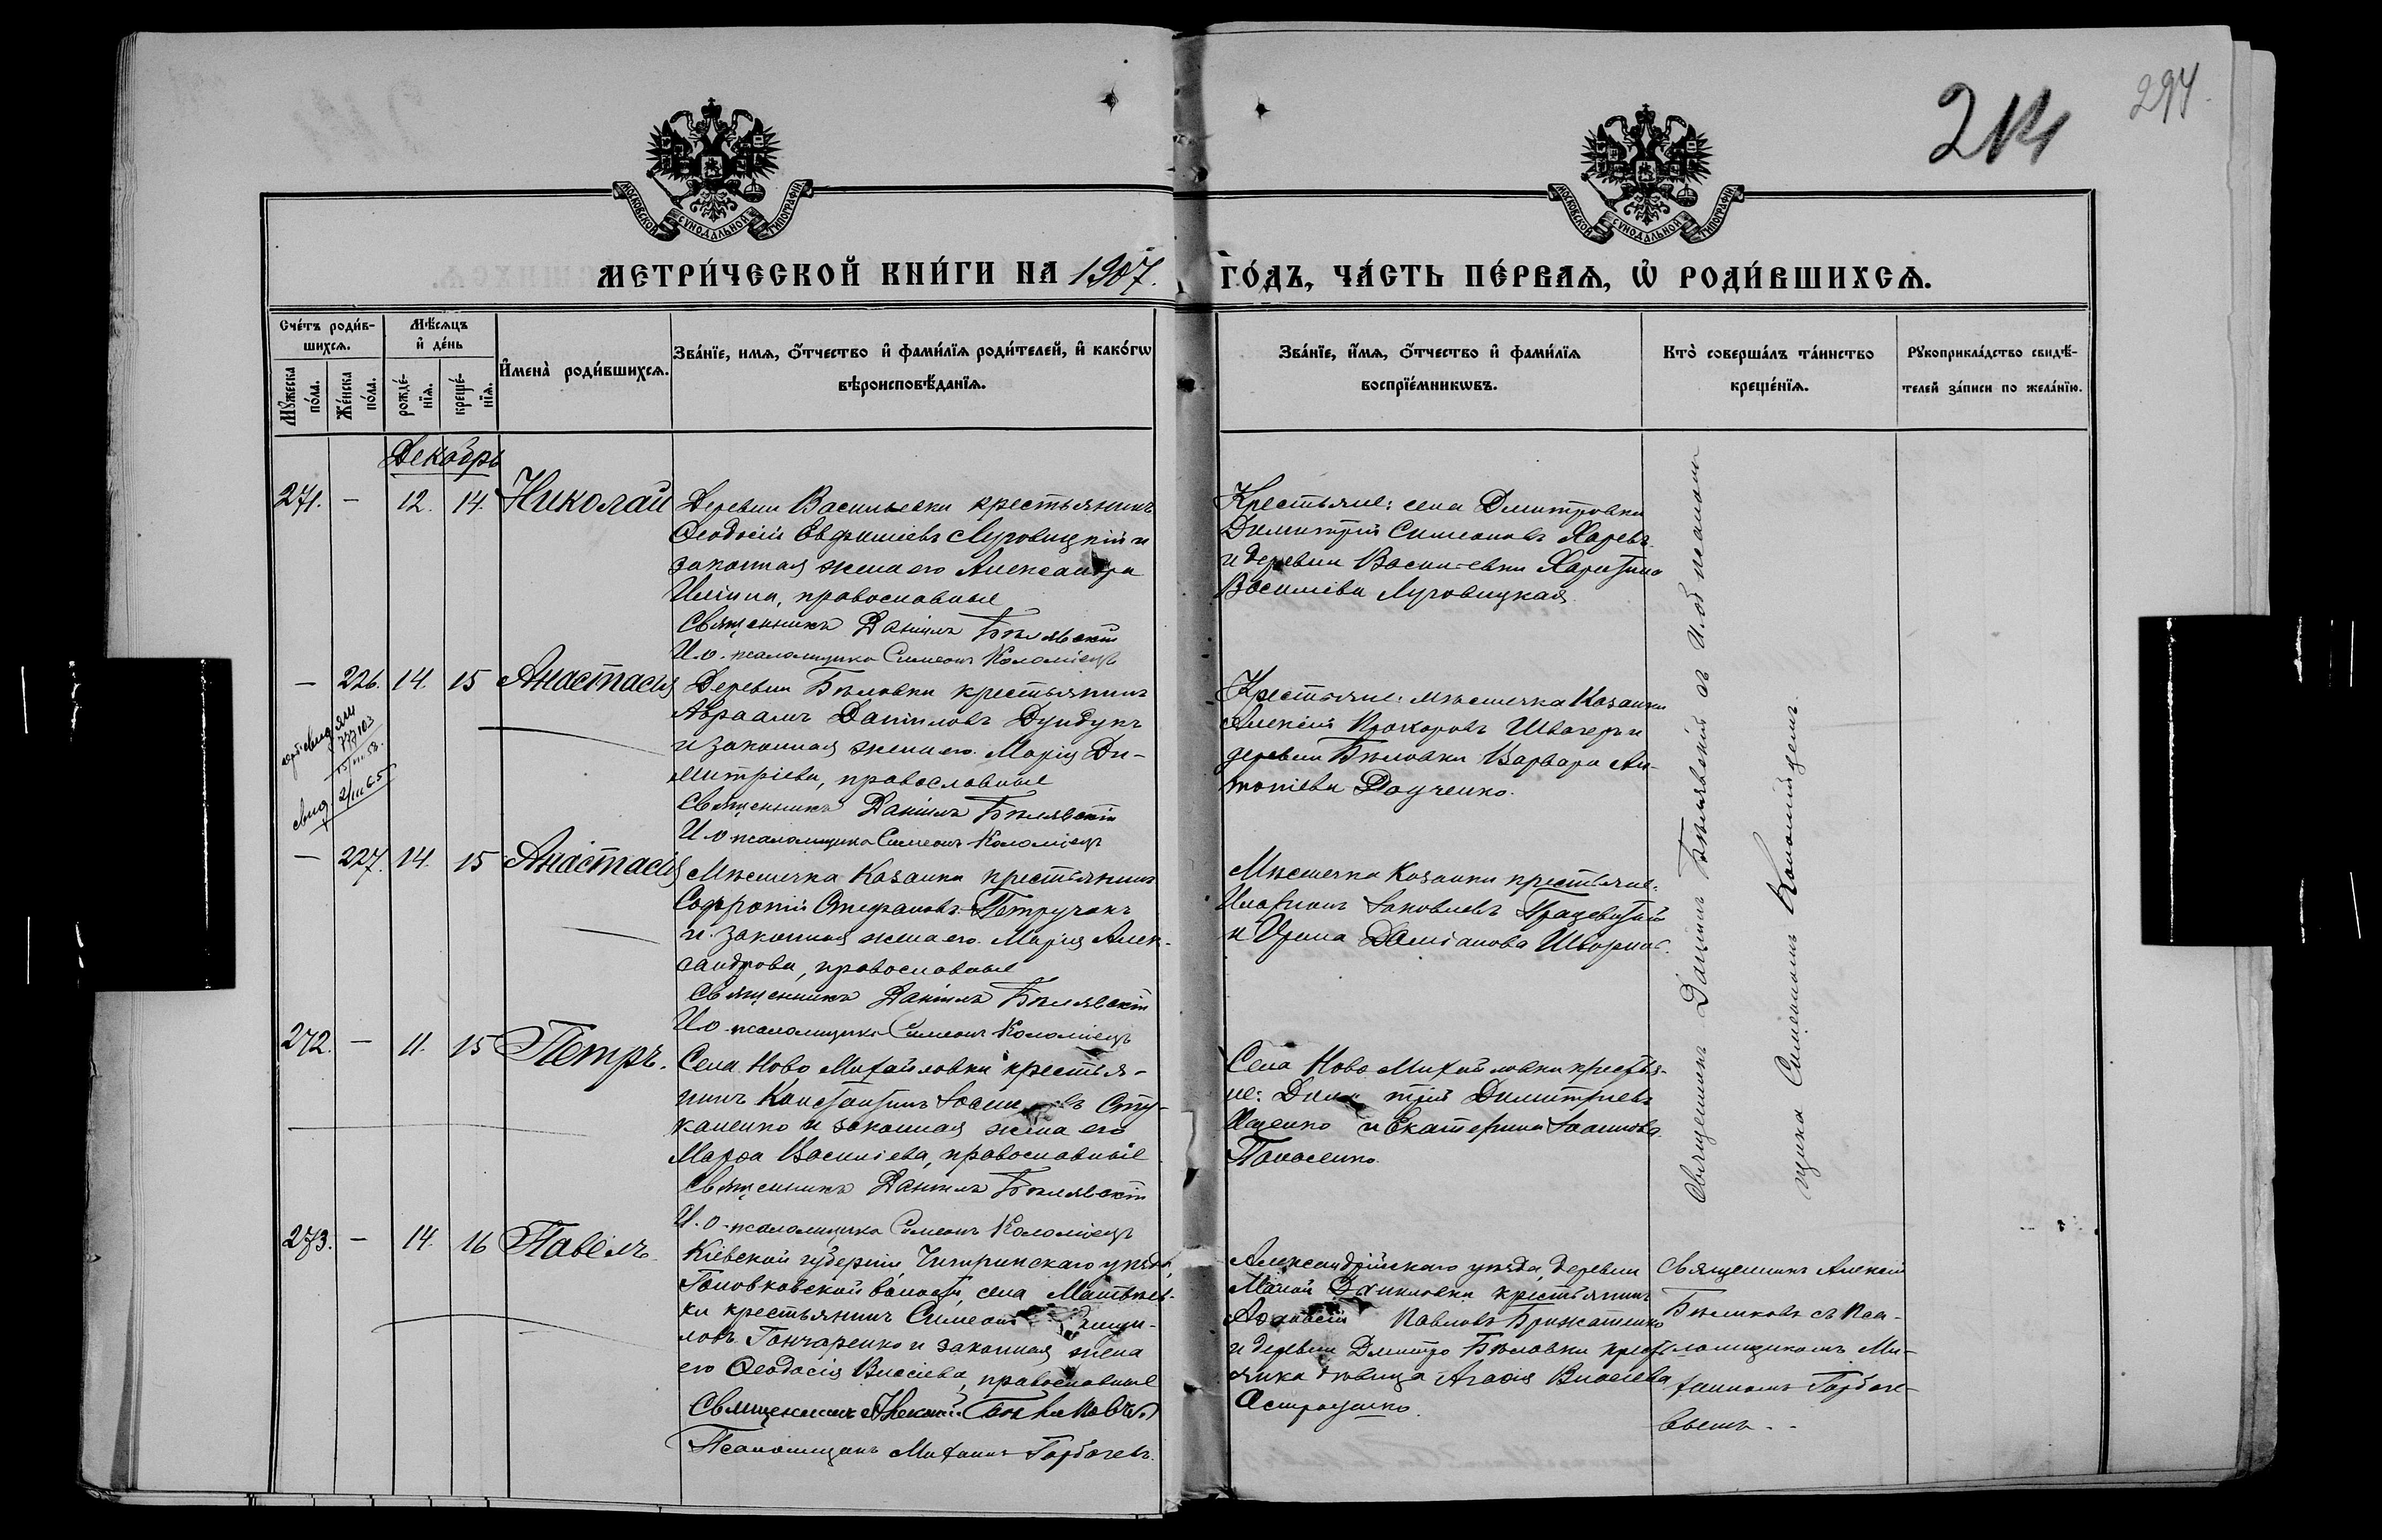 214
294.
МОСКОВСКОЙ СѴНОДАЛЬНОЙ ТИПОГРАФІИ
МОСКОВСКОЙ СѴНОДАЛЬНОЙ ТИПОГРАФІИ
МЕТРИ́ЧЕСКОЙ КНИ́ГИ НА 1907. ГО́ДЪ, ЧА́СТЬ ПЕ́РВАѦ, Ѡ҆ РОДИ́ВШИХСѦ.
Сче́тъ роди́в-
шихсѧ.
Мꙋжеска по́ла.
Же́нска по́ла.
Мѣ́сѧцъ
и҆ де́нь
рожде́-
нїѧ.
креще́-
нїѧ.
И҆мена̀ роди́вшихсѧ.
Зва́нїе, имѧ, ѻ҆́тчество и҆ фами́лїѧ роди́телей, и҆ како́гѡ
вѣроисповѣ́данїѧ.
Зва́нїе, и҆́мѧ, ѻ҆́тчество и҆ фами́лїѧ
воспрїе́мникѡвъ.
Кто̀ соверша́лъ та́инство
креще́нїѧ.
Рꙋкоприкла́дство свидѣ́-
телей за́писи по жела́нїю.
Декабрь
271. — 12. 14. Николай
Деревни Васильевки крестьянинъ
Ѳеодосій Евѳиміевъ Луговицкій и
законная жена его Александра
Иліина, православные
Священникъ Даніилъ Бѣлявскій
И. о. псаломщика Симеонъ Коломіецъ
Крестьяне: села Дмитровки
Димитрій Симеоновъ Харевъ
и деревни Васильевки Харитина
Василіева Луговицкая
— 226. 14. 15 Анастасія
Деревни Бѣловки крестьянинъ
Авраамъ Даніиловъ Дундукъ
и законная жена его Марія Ди-
митріева, православные
Священникъ Даніилъ Бѣлявскій
И о псаломщика Симеонъ Коломіецъ
Крестьяне: мѣстечка Казанки
Алексій Прохоровъ Швагеръ и
деревни Бѣловки Варвара Ан-
тоніева Доученко.
свид.
— 227. 14. 15 Анастасія
Мѣстечка Казанки крестьянинъ
Софроній Стефановъ Петручакъ
и законная жена его Марія Алек-
сандрова, православные
Священникъ Даніилъ Бѣлявскій
И о псаломщика Симеонъ Коломіецъ
Мѣстечка Казанки крестьяне:
Иларіонъ Іаковлевъ
и Ирина Даміанова
272. — 11. 15 Петръ.
Села Ново Михайловки крестья-
нинъ Константинъ Сту-
каленко и законная жена его
Марѳа Василіева, православные
Священникъ Даніилъ Бѣлявскій
И. о псаломщика Симеонъ Коломіецъ
Села Ново Михайловки крестья-
не: Димитрій Димитріевъ
Яценко и Екатерина Іоаннова
Панасенко.
273. — 14. 16 Павелъ
Кіевской губерніи, Чигиринскаго уѣзда,
Головковской волости, села Матвѣев-
ки крестьянинъ Симеонъ
ловъ Гончаренко и законная жена
его Ѳеодосія Власіева, православные
Священникъ Алексій Бѣликовъ
Псаломщикъ Михаилъ Горбачевъ.
Александрійскаго уѣзда, деревни
Малой Даниловки крестьянинъ
Аѳанасій Павловъ Брижатенко
и деревни Дмитро Бѣловки крест-
янка дѣвица Агаѳія Власіева
Остроушко
Священникъ Даніилъ Бѣлявскій съ И. об псалом-
щика Симеономъ Коломійцемъ
Священникъ Алексій
Бѣликовъ съ Пса-
ломщикомъ Ми-
хаиломъ Горбаче-
вымъ..